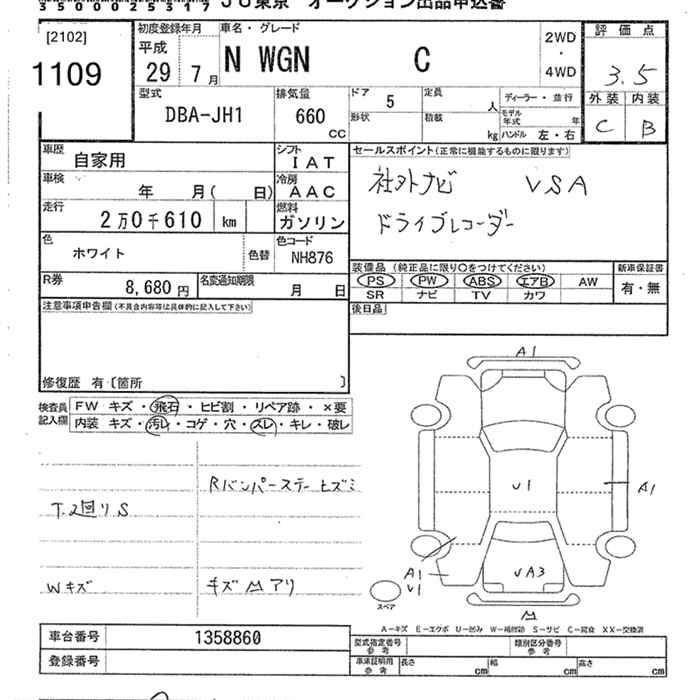 35000 25317 JU東京 オークション出品申込書
[2102]
1109
初度登録年月
平成
29年 7月
車名・グレード
N WGN C
2WD
・
4WD
評価点
3.5
外装 内装
C B
型式
DBA-JH1
排気量
660
cc
ドア
5
形状
定員
人
積載
kg
ディーラー・並行
モデル年式 年
ハンドル 左・右
車歴
自家用
車検
年 月( 日)
走行
2万0千610 km
色
ホワイト
色替
R券
8,680円
名変通知期限
月 日
シフト
IAT
冷房
AAC
燃料
ガソリン
色コード
NH876
セールスポイント(正常に機能するものに限ります)
社外ナビ VSA
ドライブレコーダー
装備品(純正品に限り○をつけてください)
PS PW ABS エアB AW
SR ナビ TV カワ
新車保証書
有・無
後日品
注意事項申告欄(不具合内容等は具体的に記入して下さい)
修復歴 有〔箇所 〕
検査員記入欄
FW キズ・飛石・ヒビ割・リペア跡・×要
内装 キズ・汚レ・コゲ・穴・スレ・キレ・破レ
Rバンパーステー ヒズミ
T.2回リS
Wキズ
キズ凹アリ
A1
U1
A1
A1
U1
UA3
スペア
A-キズ E-エクボ U-凹み W-補修跡 S-サビ C-腐食 XX-交換済
車台番号
1358860
登録番号
型式指定番号
参考
類別区分番号
参考
車庫証明用
参考
長さ cm
幅 cm
高さ cm